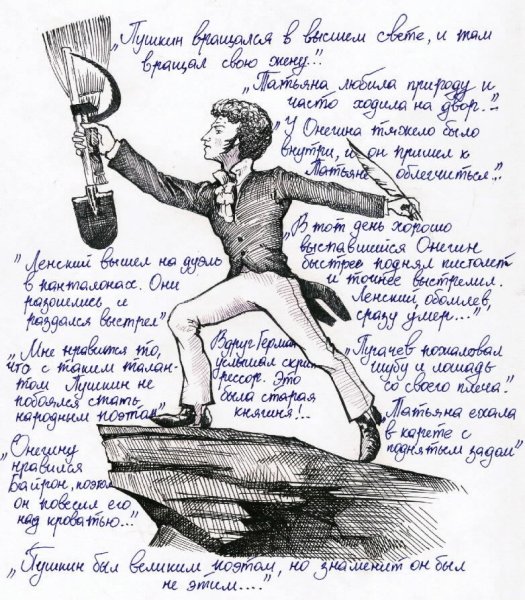 „Пушкин вращался в высшем свете, и там
вращал свою жену..."
„Татьяна любила природу и
часто ходила на двор..."
„У Онегина тяжело было
внутри, и он пришел к
Татьяне облегчиться..."
„В тот день хорошо
выспавшийся Онегин
быстрее поднял пистолет
и точнее выстрелил.
Ленский, обомлев,
сразу умер..."
„Ленский вышел на дуэль
в панталонах. Они
разошлись и
раздался выстрел"
„Мне нравится то,
что с таким талан-
том Пушкин не
побоялся стать
народным поэтом"
Вдруг Герман
услышал скрип
рессор. Это
была старая
княгиня!..
„Пугачев пожаловал
шубу и лошадь
со своего плеча"
„Татьяна ехала
в карете с
поднятым задом"
„Онегину
нравился
Байрон, поэтому
он повесил его
над кроватью..."
„Пушкин был великим поэтом, но знаменит он был
не этим...."